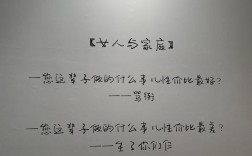 【女人与家庭】
一您这辈子做的什么事儿性价比最好?
——骂街
一您这辈子做的什么事儿性价比最差?
——生了你们仨